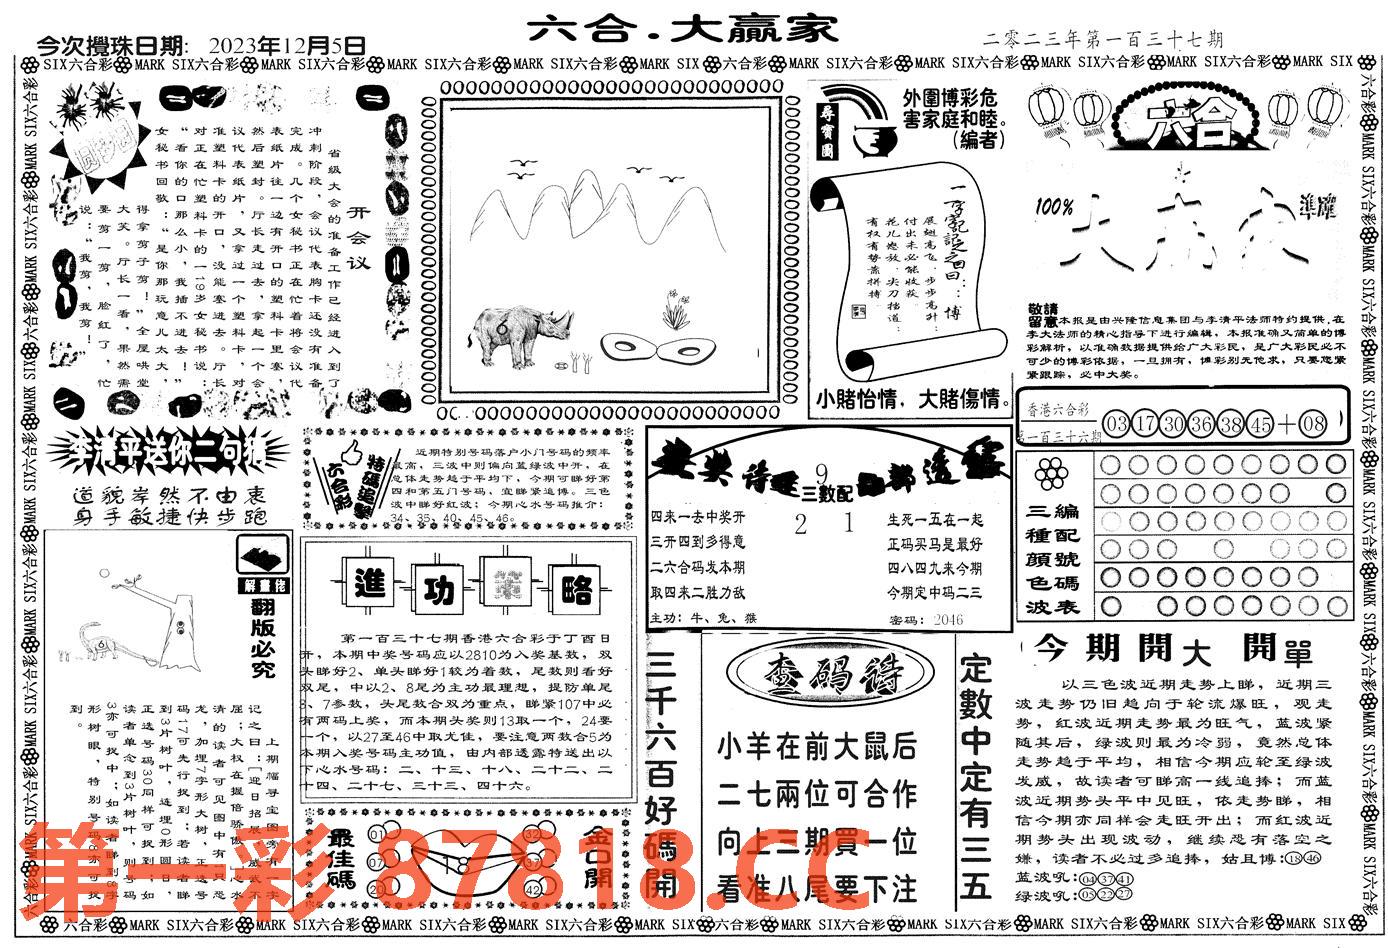 六合.大贏家
今次攪珠日期: 2023年12月5日
二零二三年第一百三十七期
开会议
省级大会的准备工作已经进入到了
冲刺阶段，会议代表胸卡还没有准备
完成。几个女秘书正在忙着将会议代
表纸片往一边有开口的塑料卡里塞，
然后塑封。厅长走过去，拿起一个会
议代表纸片，又拿过一个塑料卡，对
准塑料卡的开口，没能塞进去。厅长
对正在忙塑料卡的一19岁女秘书说：
“看你的口那么小，我插不进去！”
女秘书回敬：“是你那玩意儿太大，
得拿剪子剪！”全屋哄堂
大笑。厅长一看，果然需
要剪一剪，脸红了，忙
说：“我剪，我剪！”
尋寶圖
外圍博彩危
害家庭和睦。
(编者)
一字記之曰：博
展翅高飞、步步高升：
付出未必能收获。
花儿怒放、尖刀挡道：
有权有势靠拼搏
小賭怡情，大賭傷情。
六合
100%
準確
敬請
留意
本报是由兴隆信息集团与李清平法师特约提供,在
李大法师的精心指导下进行编辑，本报准确又简单的博
彩解析，以准确数据提供给广大彩民，是广大彩民必不
可少的博彩依据，一旦拥有，博彩别无他求，只要您紧
紧跟踪，必中大奖。
香港六合彩
第一百三十六期
03 17 30 36 38 45 + 08
李清平送你二句猜
道貌岸然不由衷
身手敏捷快步跑
六合彩
特碼追擊
近期特别号码落户小门号码的频率
最高，三波中则偏向蓝绿波中开，在
总体走势趋于平均下，今期可睇好第
四和第五门号码，宜睇紧追博。三色
波中睇好红波；今期心水号码推介：
34、35、40、45、46。
9
三數配
2 1
四来一去中奖开
三开四到多得意
二六合码发本期
取四来二胜力敌
主功：牛、兔、猴
生死一五在一起
正码买马是最好
四八四九来今期
今期定中码二三
密码：2046
三種顔色波
編配號碼表
解畫佬
翻版必究
上期幅寻宝图旁有一字
记之曰：[迎日招展，威风不
屈；大权在握倍骄傲]，心水
清的读者可见图中有一只恐
龙，加埋7字形大树，正选号
码17可先行找到；若读者睇
到3片树叶，连埋0形圆日，
正选号码30同样可捉到；如
读者单念到3片树叶，则号码
3亦可捉中；如读者睇到8字
形树眼，特别号码8亦可找
到。
進功策略
第一百三十七期香港六合彩于丁酉日
开，本期中奖号码应以2810为入奖基数，双
头睇好2、单头睇好1较为着数，尾数则看好
双尾，中以2、8尾为主功最理想，提防单尾
3、7参数，头尾数合双为重点，睇紧107中必
有两码上奖，而本期头奖则13取一个，24要
一个，以27至46中取尤佳，要注意两数合5为
本期入奖号码主功值，由内部透露特送出以
下心水号码：二、十三、十八、二十二、二
十四、二十七、三十三、四十六。
最佳碼
01
07
20
18
32
37
42
金口開
三千六百好碼開
查码诗
小羊在前大鼠后
二七兩位可合作
向上三期買一位
看准八尾要下注
定數中定有三五
今期開大 開單
以三色波近期走势上睇，近期三
波走势仍旧趋向于轮流爆旺，观走
势，红波近期走势最为旺气，蓝波紧
随其后，绿波则最为冷弱，竟然总体
走势趋于平均，相信今期应轮至绿波
发威，故读者可睇高一线追捧；而蓝
波近期势头平中见旺，依走势睇，相
信今期亦同样会走旺开出；而红波近
期势头出现波动，继续恐有落空之
嫌，读者不必过多追捧，姑且博：18 46
蓝波吼：04 37 41
绿波吼：05 22 27
第一彩 87818.CC